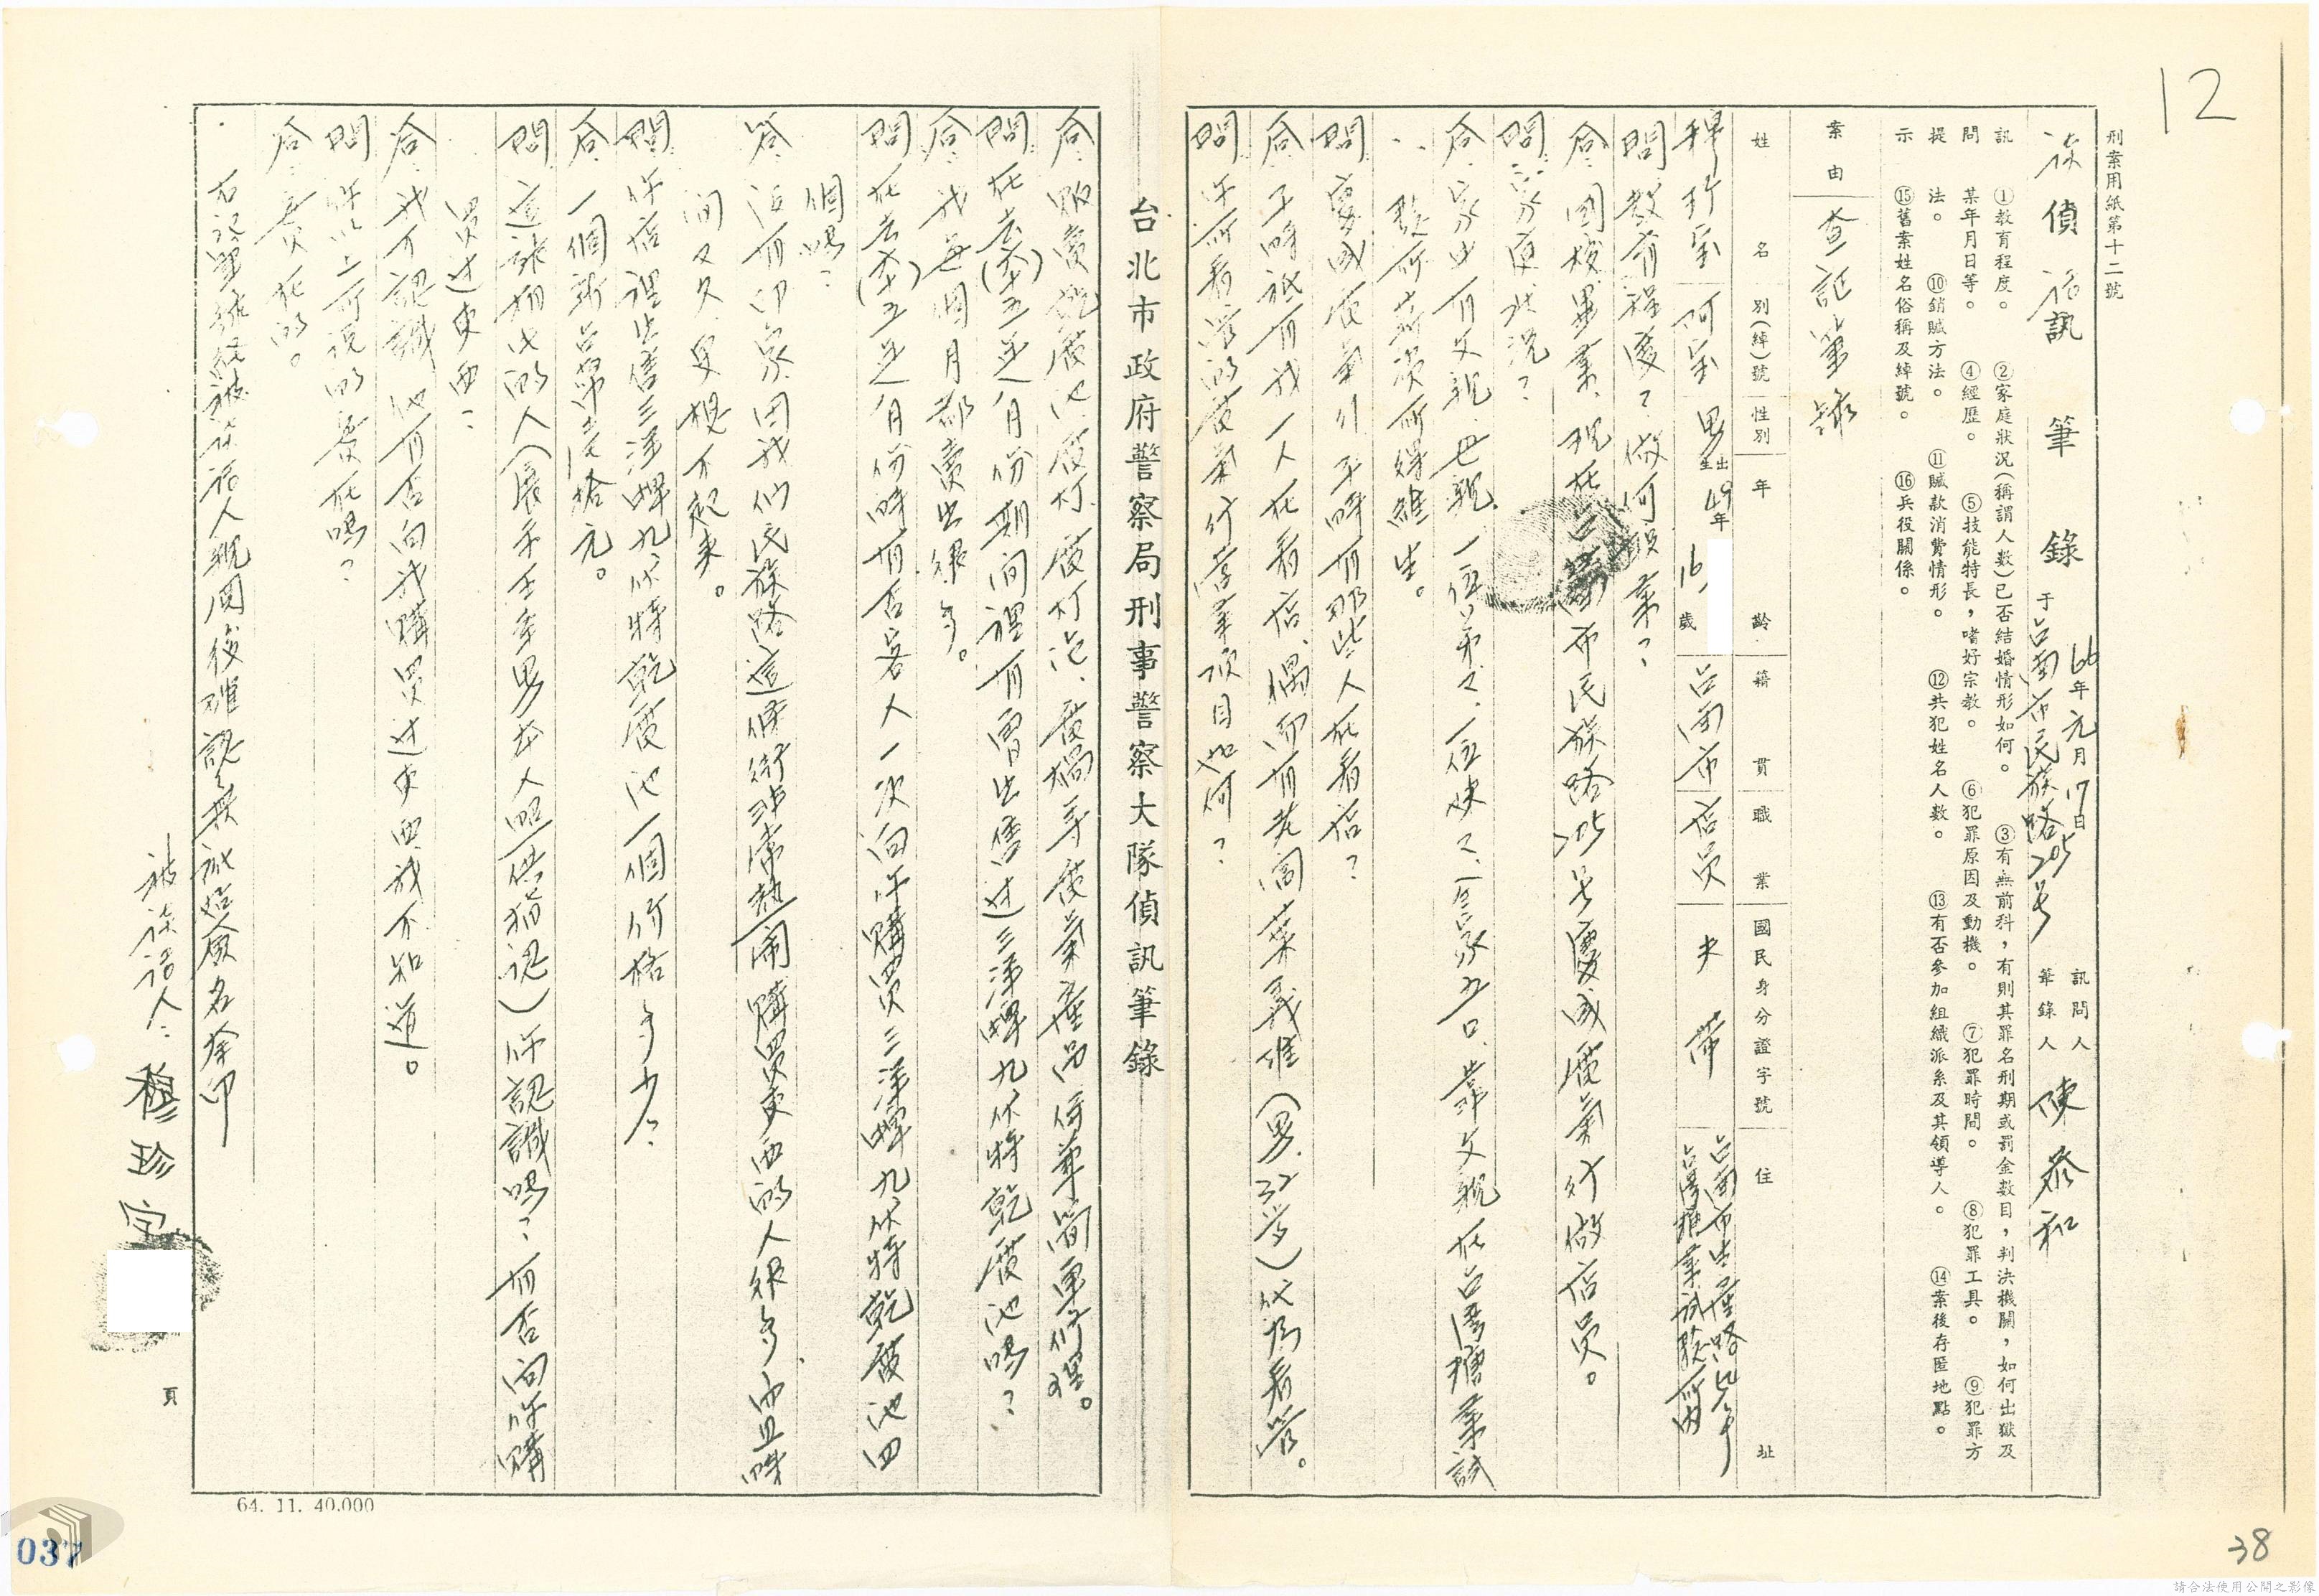 12
刑案用紙第十二號
偵訊筆錄
66年元月17日
于台南市民族路205号
訊問人
筆錄人 陳恭和
訊問提示
①教育程度。 ②家庭狀況(稱謂人數)已否結婚情形如何。 ③有無前科,有則其罪名刑期或罰金數目,判決機關,如何出獄及
某年月日等。 ④經歷。 ⑤技能特長,嗜好宗教。 ⑥犯罪原因及動機。 ⑦犯罪時間。 ⑧犯罪工具。 ⑨犯罪方
法。 ⑩銷贓方法。 ⑪贓款消費情形。 ⑫共犯姓名人數。 ⑬有否參加組織派系及其領導人。 ⑭案後存匿地點。
⑮舊案姓名俗稱及綽號。 ⑯兵役關係。
案由 查証筆錄
姓名 別(綽)號 性別 年齡 籍貫 職業 國民身分證字號 住址
男 出生49年 16歲 台南市 店員 未帶 台南市生產路 台灣糖業試驗所內
問:教育程度?做何職業?
答:國校畢業,現在台南市民族路205号慶成電氣行做店員。
問:家庭狀況?
答:家中有父親、母親、一位弟々、一位妹々、一家五口,靠父親在台灣糖業試
驗所薪資所得維生。
問:慶成電氣行平時有那些人在看店?
答:平時祇有我一人在看店,偶而有老闆葉義雄(男,32歲)代為看管。
問:你所看管的電氣行營業項目如何?
台北市政府警察局刑事警察大隊偵訊筆錄
答:販賣乾電池、電灯、電灯泡、電鍋等電氣產品侍單簡單修理。
問:在去(六十五)年 月份期間裡有曾出售过三洋牌九伏特乾電池嗎?
答:我每個月都賣出很多。
問:在去(六十五)年 月份時有否客人一次向你購買三洋牌九伏特乾電池四
個嗎?
答:沒有印象,因我們民族路這條街非常熱鬧,購買東西的人很多,而且時
間又久,更想不起來。
問:你店裡出售三洋牌九伏特乾電池一個价格多少?
答:一個新台幣 拾元。
問:這張相片的人(展示王幸男本人照一供指認)你認識嗎?有否向你購
買过東西?
答:我不認識,他有否向我購買过東西我不知道。
問:你以上所說的實在嗎?
答:實在的。
右記筆錄經被訪談人親閱後確認無訛始簽名捺印
被談話人:穆珍宝
頁
64. 11. 40.000
037
38
請合法使用公開之影像